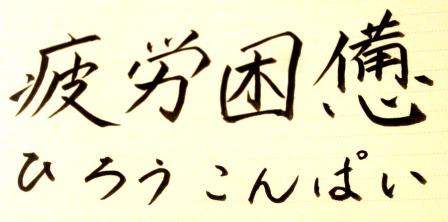 疲労困憊
ひろうこんぱい